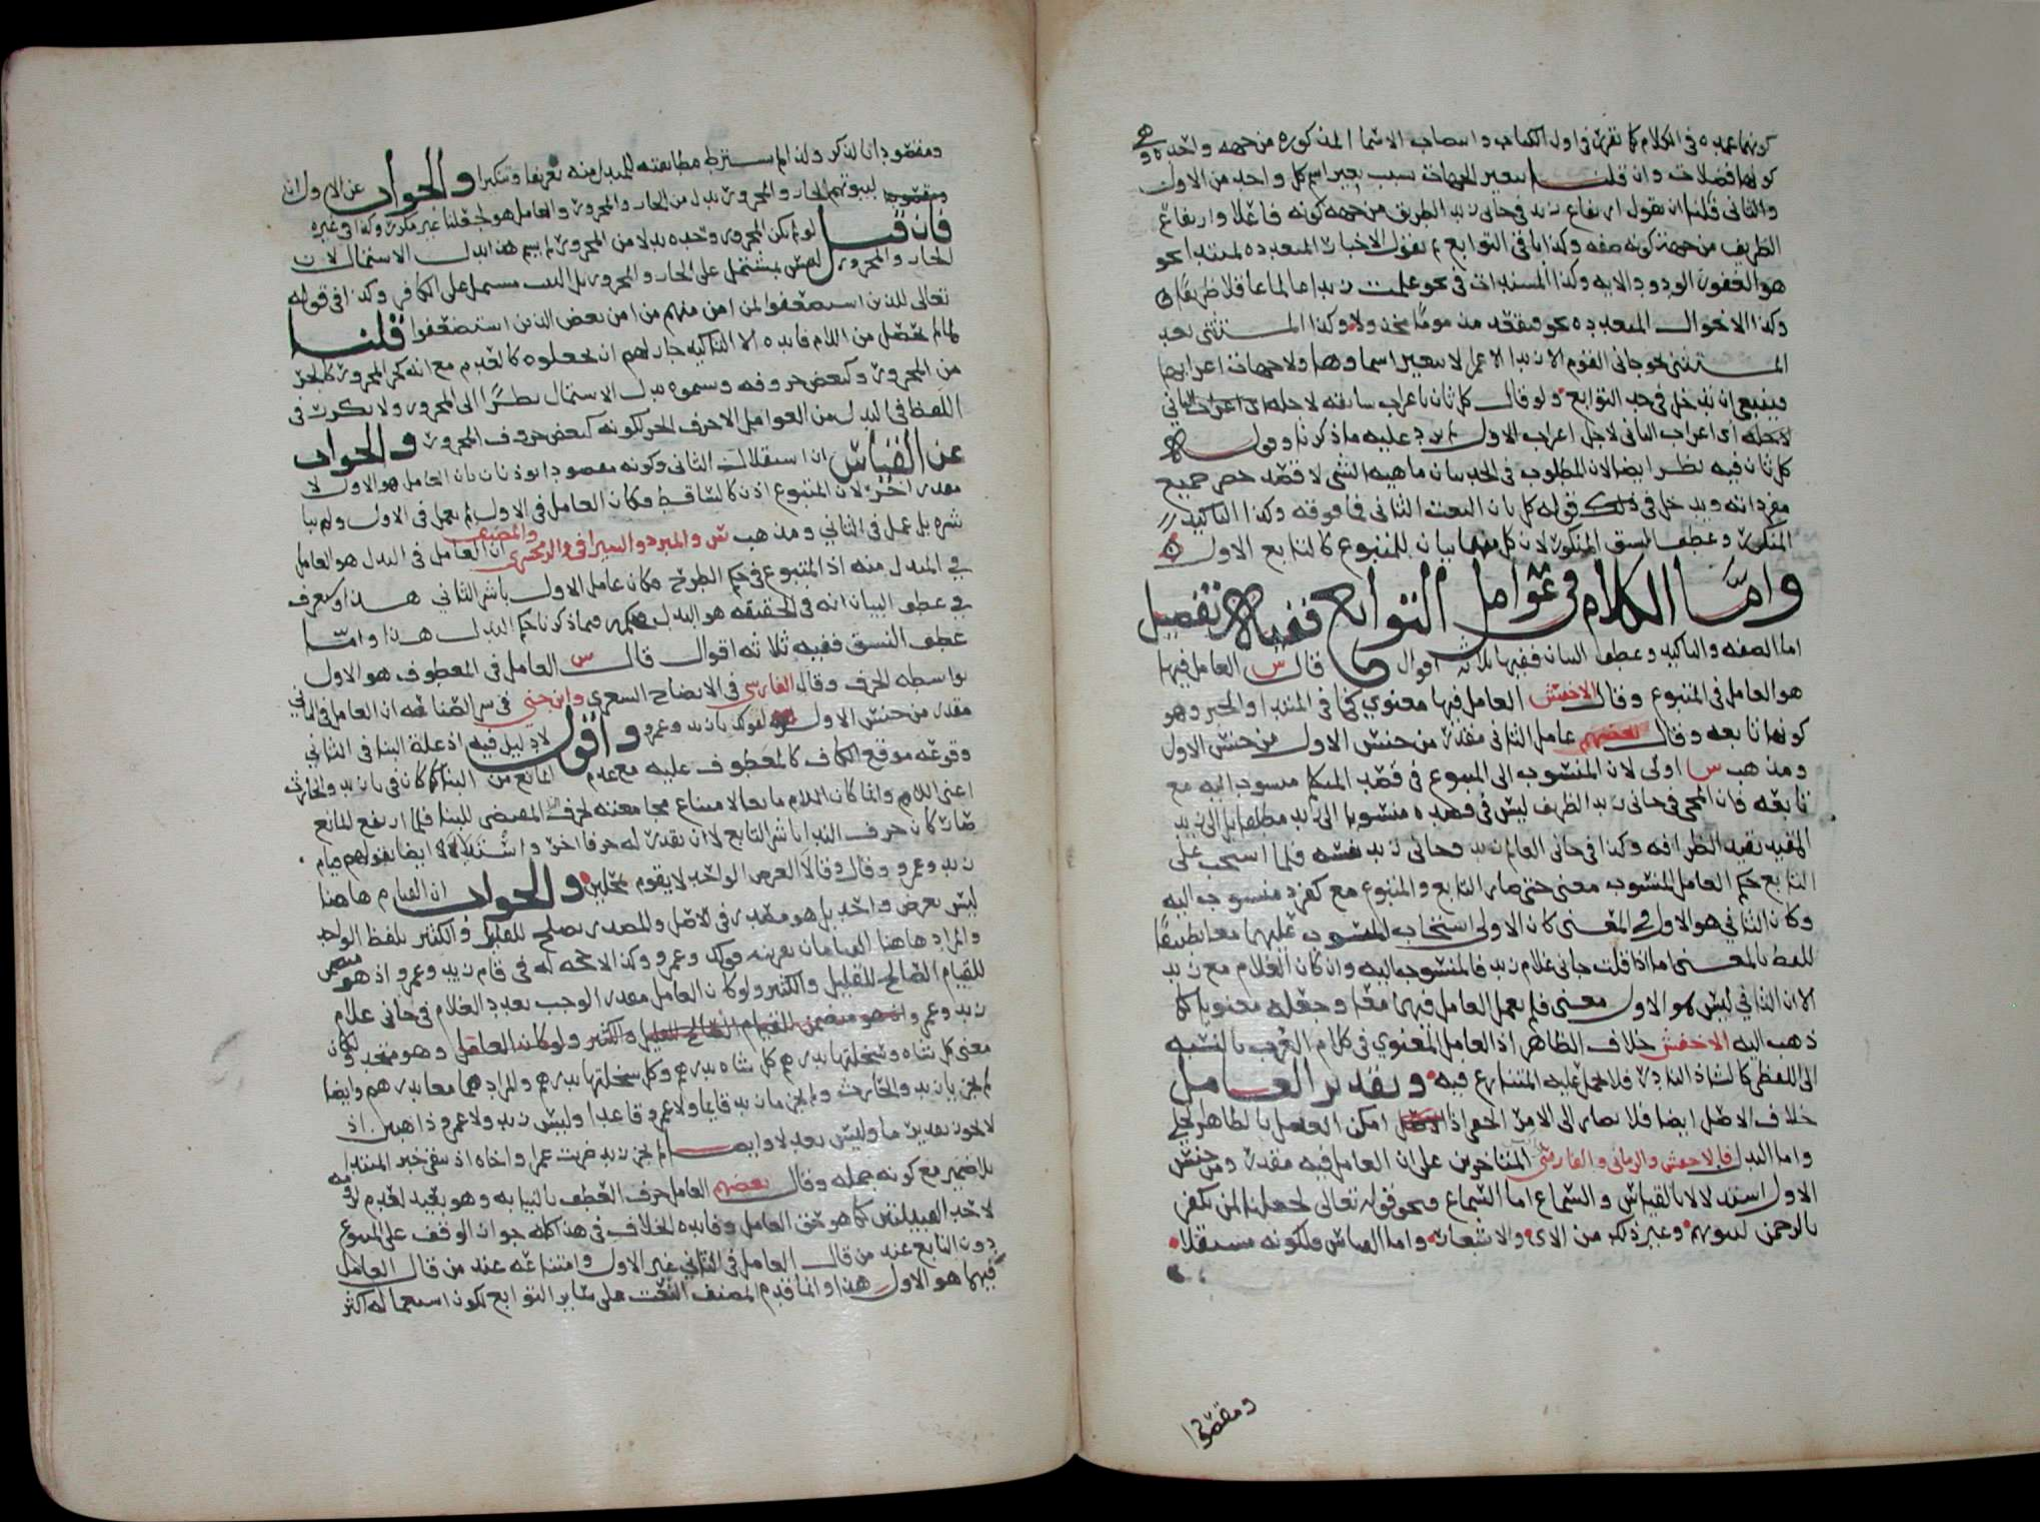 كونها عمده فى الكلام كما تقرر فى اول الكتاب وانتصاب الاسما المذكوره من جهه واحده وهى
كونها فضلات وان قلنا بتغير الجهات بسبب تغير اسم كل واحد من الاول
والثانى قلنا ان نقول ارتفاع زيد فى جانى زيد الظريف من جهه كونه فاعلا وارتفاع
الظريف من جهة كونه صفه وكذا باقى التوابع ثم نقول الاخبار المتعدده لمبتدا نحو
هو الغفور الودود الايه وكذا المسندات فى نحو علمت زيدا عالما عاقلا ظريفا
وكذا الاحوال المتعدده نحو فتقعد مذموما مخذولا وكذا المستثنى بعد
المستثنى نحو جانى القوم الا زيدا الا عمرا لا يتغير اسماوها ولا جهات اعرابها
فينبغى ان تدخل فى حد التوابع ولو قال كل ثان باعراب سابقه لاجله اى اعراب الثانى
لاجله اى اعراب الثانى لاجل اعراب الاول لم يرد عليه ما ذكرنا وقوله
كل ثان فيه نظر ايضا لان المطلوب فى الحد بيان ماهيه الشى لا قصد حصر جميع
مفرداته ويدخل فى ذلك قوله كل ثان النعت الثانى فما فوقه وكذا التاكيد
المتكرر وعطف النسق المتكرر لان كل منهما بيان للمتبوع كالتابع الاول
وامّا الكلام فى عوامل التوابع ففيه تفصيل
اما الصفه والتاكيد وعطف البيان ففيها ثلاثه اقوال قال س العامل فيها
هو العامل فى المتبوع وقال الاخفش العامل فيها معنوي كما فى المبتدا والخبر وهو
كونها تابعه وقال بعضهم عامل الثانى مقدر من جنس الاول
ومذهب س اولى لان المنسوب الى المتبوع فى قصد المتكلم منسوب اليه مع
تابعه فان المجى فى جانى زيد الظريف ليس فى قصده منسوبا الى زيد مطلقا بل الى زيد
المقيد بقيد الظرافه وكذا فى جانى العالم زيد وجانى زيد نفسه فلما انسحب على
التابع حكم العامل المنسوب معنى حتى صار التابع والمتبوع معا كمفرد منسوب اليه
وكان الثانى هو الاول فى المعنى كان الاولى انسحاب المنسوب عليهما معا تطبيقا
للفظ بالمعنى اما اذا قلت جانى غلام زيد فالمنسوب اليه وان كان الغلام مع زيد
الا ان الثانى ليس هو الاول معنى فلم يعمل العامل فيهما معا وجعله معنويا كما
ذهب اليه الاخفش خلاف الظاهر اذ العامل المعنوي فى كلام العرب بالنسبه
الى اللفظى كالشاذ النادر فلا يحمل عليه المتنازع فيه وتقدير العامل
خلاف الاصل ايضا فلا يصار الى الامر الخفى اذا امكن العمل بالظاهر الجلى
واما البدل فالاخفش والرمانى والفارسى المتاخرين على ان العامل فيه مقدر من جنس
الاول استدلالا بالقياس والسماع اما السماع فنحو قوله تعالى لجعلنا لمن يكفر
بالرحمن لبيوتهم وغير ذلك من الاى والاشعار واما القياس فلكونه مستقلا
ومقصودا
ومقصودا بالذكر ولذا لم يشترط مطابقته للمبدل منه تعريفا وتنكيرا والجواب عن الاول ان
لبيوتهم الجار والمجرور بدل من الجار والمجرور والعامل هو لجعلنا غير مكرر وكذا فى غيره
فان قيل لو لم يكن المجرور وحده بدلا من المجرور لم يسم هذا بدل الاشتمال لان
الجار والمجرور ليس بمشتمل على الجار والمجرور بل البيت مشتمل على الكافر وكذا فى قوله
تعالى للذين استضعفوا لمن امن منهم من امن بعض الذين استضعفوا قلنا
لما لم يحصل من اللام فايده الا التاكيد جاز لهم ان يجعلوه كالعدم مع انه كجز المجرور كالجز
من المجرور وكبعض حروفه وسموه بدل الاشتمال نظرا الى المجرور ولا يكرر فى
اللفظ فى البدل من العوامل الا حرف الجر لكونه كبعض حروف المجرور والجواب
عن القياس ان استقلال الثانى وكونه مقصودا يوذنان بان العامل هو الاول لا
مقدر اخر لان المتبوع اذن كالساقط فكان العامل فى الاول لم يعمل فى الاول ولم يبا
شره بل عمل فى الثانى ومذهب س والمبرد والسيرافى والزمخشرى والمصنف ان العامل فى البدل هو العامل
فى المبدل منه اذ المتبوع فى حكم الطرح فكان عامل الاول باشر الثانى هذا وسنعرف
فى عطف البيان انه فى الحقيقه هو البدل فما ذكرنا حكم البدل هذا وامّا
عطف النسق ففيه ثلاثه اقوال قال س العامل فى المعطوف هو الاول
بواسطه الحرف وقال الفارسى فى الايضاح الشعرى وابن جنى فى سر الصناعه ان العامل فى الثانى
مقدر من جنس الاول لقولك يا زيد وعمرو واقول لا دليل فيه اذ علة البنا فى الثانى
وقوعه موقع الكاف كالمعطوف عليه مع عدم المانع من البنا كما كان فى يا زيد والحارث
اعنى اللام وانما كان اللام مانعا لامتناع مجامعته لحرف المقتضى للبنا فلما ارتفع المانع
صار كان حرف الندا باشر التابع لا ان يقدر له حرفا اخر واستدلالا ايضا بقولهم قام
زيد وعمرو وقالا العرض الواحد لا يقوم بمحلين والجواب ان القيام هاهنا
ليس بعرض واحد بل هو مصدر فى الاصل والمصدر يصلح للقليل والكثير بلفظ الواحد
والمراد هاهنا القيامان بقرينه قولك وعمرو وكذا لا حجه له فى قام زيد وعمرو اذ هو متضمن
للقيام الصالح للقليل والكثير ولو كان العامل مقدرا لوجب تعدد الغلام فى جانى غلام
زيد وعمرو اذ هو متضمن القيام الصالح للقليل والكثير ولو كان العامل وهو متحد ولكان
معنى كل شاه وسخلتها بدرهم كل شاه بدرهم وكل سخلتها بدرهم والمراد هما معا بدرهم وايضا
لم يجز يا زيد والحارث ولم يجز ما زيد قايما ولا عمرو قاعدا وليس زيد ولا عمرو ذاهبين اذ
لا يجوز تقدير ما وليس بعد لا وايضا لم يجز زيد ضربت عمرا واخاه اذ يبقى خبر المبتدا
بلا ضمير مع كونه جمله وقال بعضهم العامل حرف العطف بالنيابه وهو بعيد لعدم لزومه
لاحد القبيلتين كما هو حق العامل وفايده الخلاف فى هذا كله جواز الوقف على المتبوع
دون التابع عند من قال العامل فى الثانى غير الاول وامتناعه عند من قال العامل
فيهما هو الاول هذا وانما قدم المصنف النعت على ساير التوابع لكون استعماله اكثر